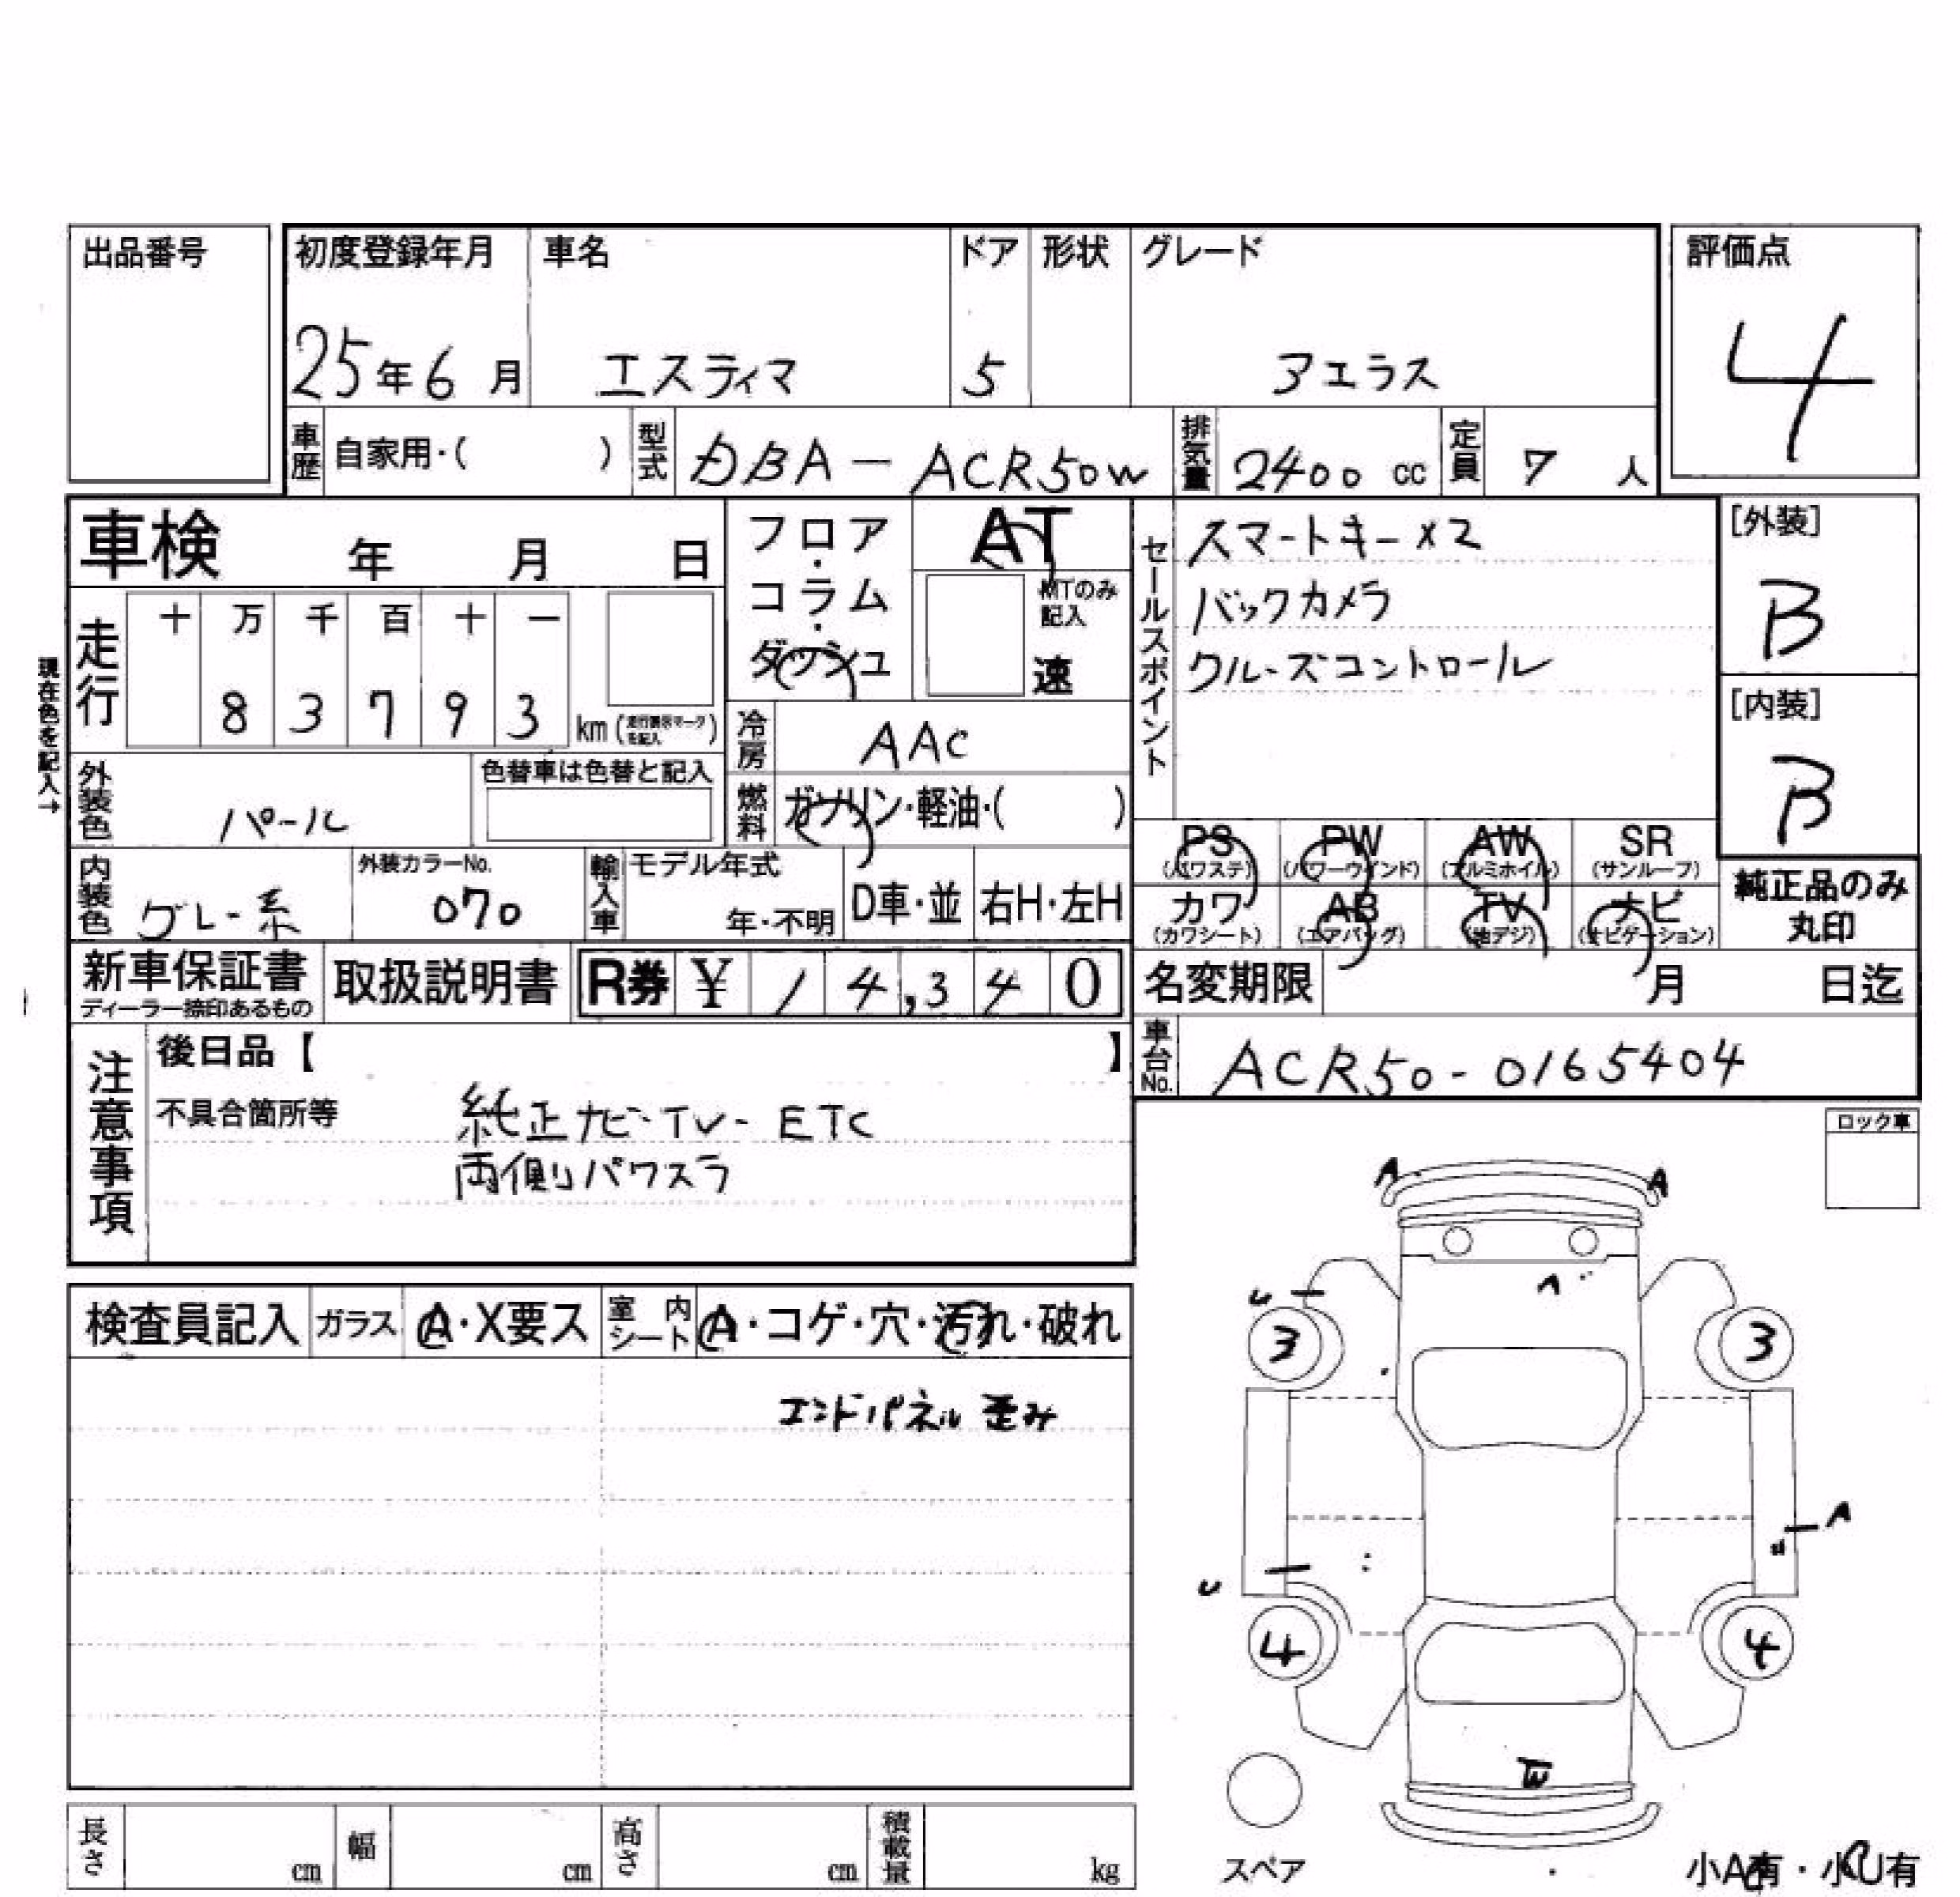 出品番号
初度登録年月 車名 ドア 形状 グレード 評価点
25年6月 エスティマ 5 アエラス 4
車歴 自家用・( ) 型式 DBA-ACR50W 排気量 2400 cc 定員 7 人
車検 年 月 日
フロア・コラム・ダッシュ
AT
MTのみ記入
速
セールスポイント
スマートキー×2
バックカメラ
クルーズコントロール
[外装]
B
[内装]
B
現在色を記入→
走行 十 万 千 百 十 一
8 3 7 9 3 km
冷房 AAC
燃料 ガソリン・軽油・( )
外装色 パール
色替車は色替と記入
内装色 グレー系
外装カラーNo.
070
輸入車 モデル年式
年・不明 D車・並 右H・左H
PS (パワステ) PW (パワーウインド) AW (アルミホイル) SR (サンルーフ)
カワ (カワシート) AB (エアバッグ) TV (地デジ) ナビ (ナビゲーション)
純正品のみ
丸印
新車保証書
ディーラー捺印あるもの
取扱説明書
R券 ¥ 14,340
名変期限 月 日迄
車台No. ACR50-0165404
注意事項
後日品【 】
不具合箇所等 純正ナビ-TV-ETC
両側パワスラ
ロック車
検査員記入 ガラス A・X要ス 室内シート A・コゲ・穴・汚れ・破れ
エンドパネル歪み
A A
A
U
3 3
A
U
U
4 4
W
スペア
小A有・小U有
長さ cm 幅 cm 高さ cm 積載量 kg